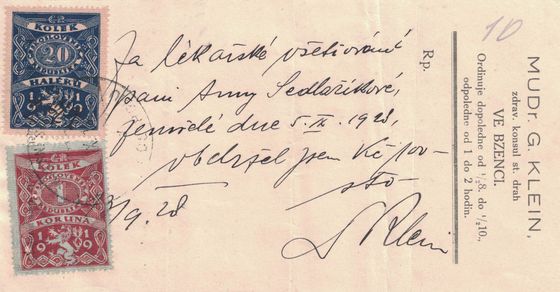 KOLEK
20
HALÉŘŮ
1919
KOLEK
1
KORUNA
1919
10
Za lékařské vyšetřování
paní Anny Sedlaříkové,
zemřelé dne 5. IX. 1928,
obdržel jsem Kč 100-
sto-
/9. 28
Klein
Rp.
MUDr. G. KLEIN,
zdrav. konsul st. drah
VE BZENCI.
Ordinuje dopoledne od ½8. do ½10,
odpoledne od 1 do 2 hodin.